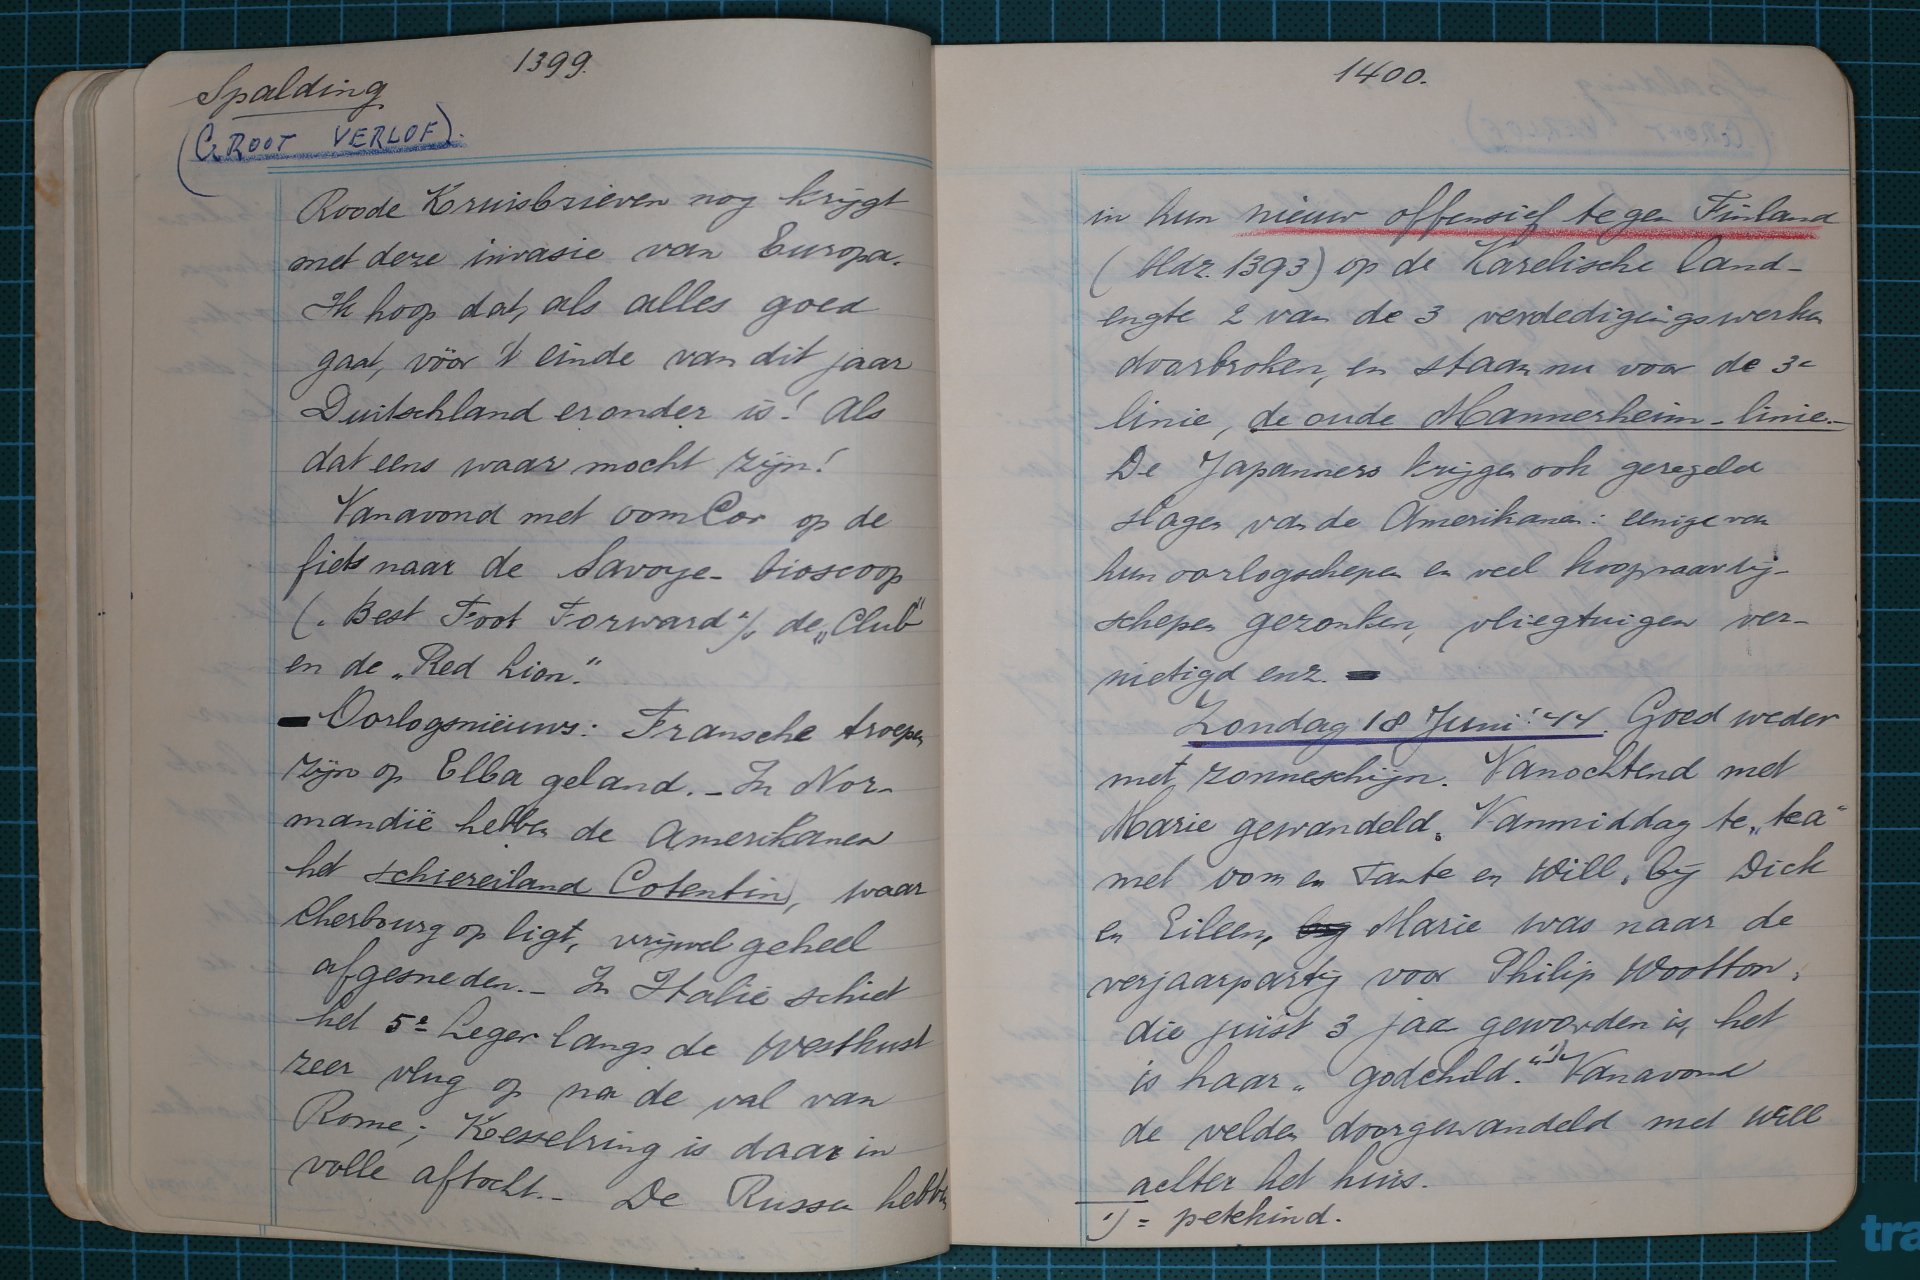 1399.
Spalding
(GROOT VERLOF).
Roode Kruisbrieven nog krijgt
met deze invasie van Europa.
Ik hoop dat, als alles goed
gaat, vóór 't einde van dit jaar
Duitschland eronder is! Als
dat eens waar mocht zijn!
Vanavond met oom Cor op de
fiets naar de Savoye-bioscoop
(„Best Foot Forward"), de „Club"
en de „Red Lion".
— Oorlogsnieuws: Fransche troepen
zijn op Elba geland. - In Nor-
mandië hebben de Amerikanen
het schiereiland Cotentin, waar
Cherbourg op ligt, vrijwel geheel
afgesneden. - In Italië schiet
het 5e Leger langs de Westkust
zeer vlug op na de val van
Rome; Kesselring is daar in
volle aftocht. - De Russen hebben
1400.
in hun nieuw offensief tegen Finland
(bldz. 1393) op de Karelische land-
engte 2 van de 3 verdedigingswerken
doorbroken, en staan nu voor de 3e
linie, de oude Mannerheim-linie. -
De Japanners krijgen ook geregeld
slagen van de Amerikanen: eenige van
hun oorlogschepen en veel koopvaardij-
schepen gezonken, vliegtuigen ver-
nietigd enz. —
Zondag 18 Juni '44. Goed weder
met zonneschijn. Vanochtend met
Marie gewandeld. Vanmiddag te „tea"
met oom en Tante en Will, bij Dick
en Eileen, Marie was naar de
verjaarpartij voor Philip Wootton,
die juist 3 jaar geworden is, het
is haar „godchild." 1) Vanavond
de velden doorgewandeld met Will
achter het huis.
1) = petekind.
tra